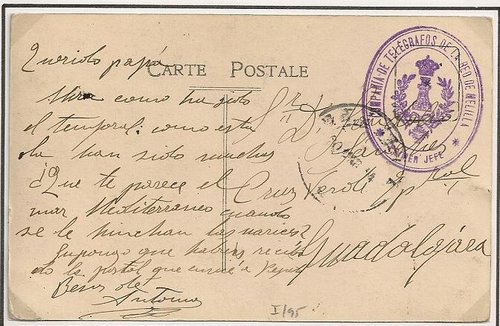 Querido papá
CARTE POSTALE
Mira como ha
el temporal: como esta
ola han sido muchas
¿Que te parece el
mar Mediterraneo cuando
se le hinchan las narices?
Supongo que habras recibi
do la postal que envié a Pepe
Besos de
Antonio
Sr D.
Cruz Verde
Guadalajara
COMPAÑIA DE TELEGRAFOS DE LA RED DE MELILLA
PRIMER JEFE
I/95